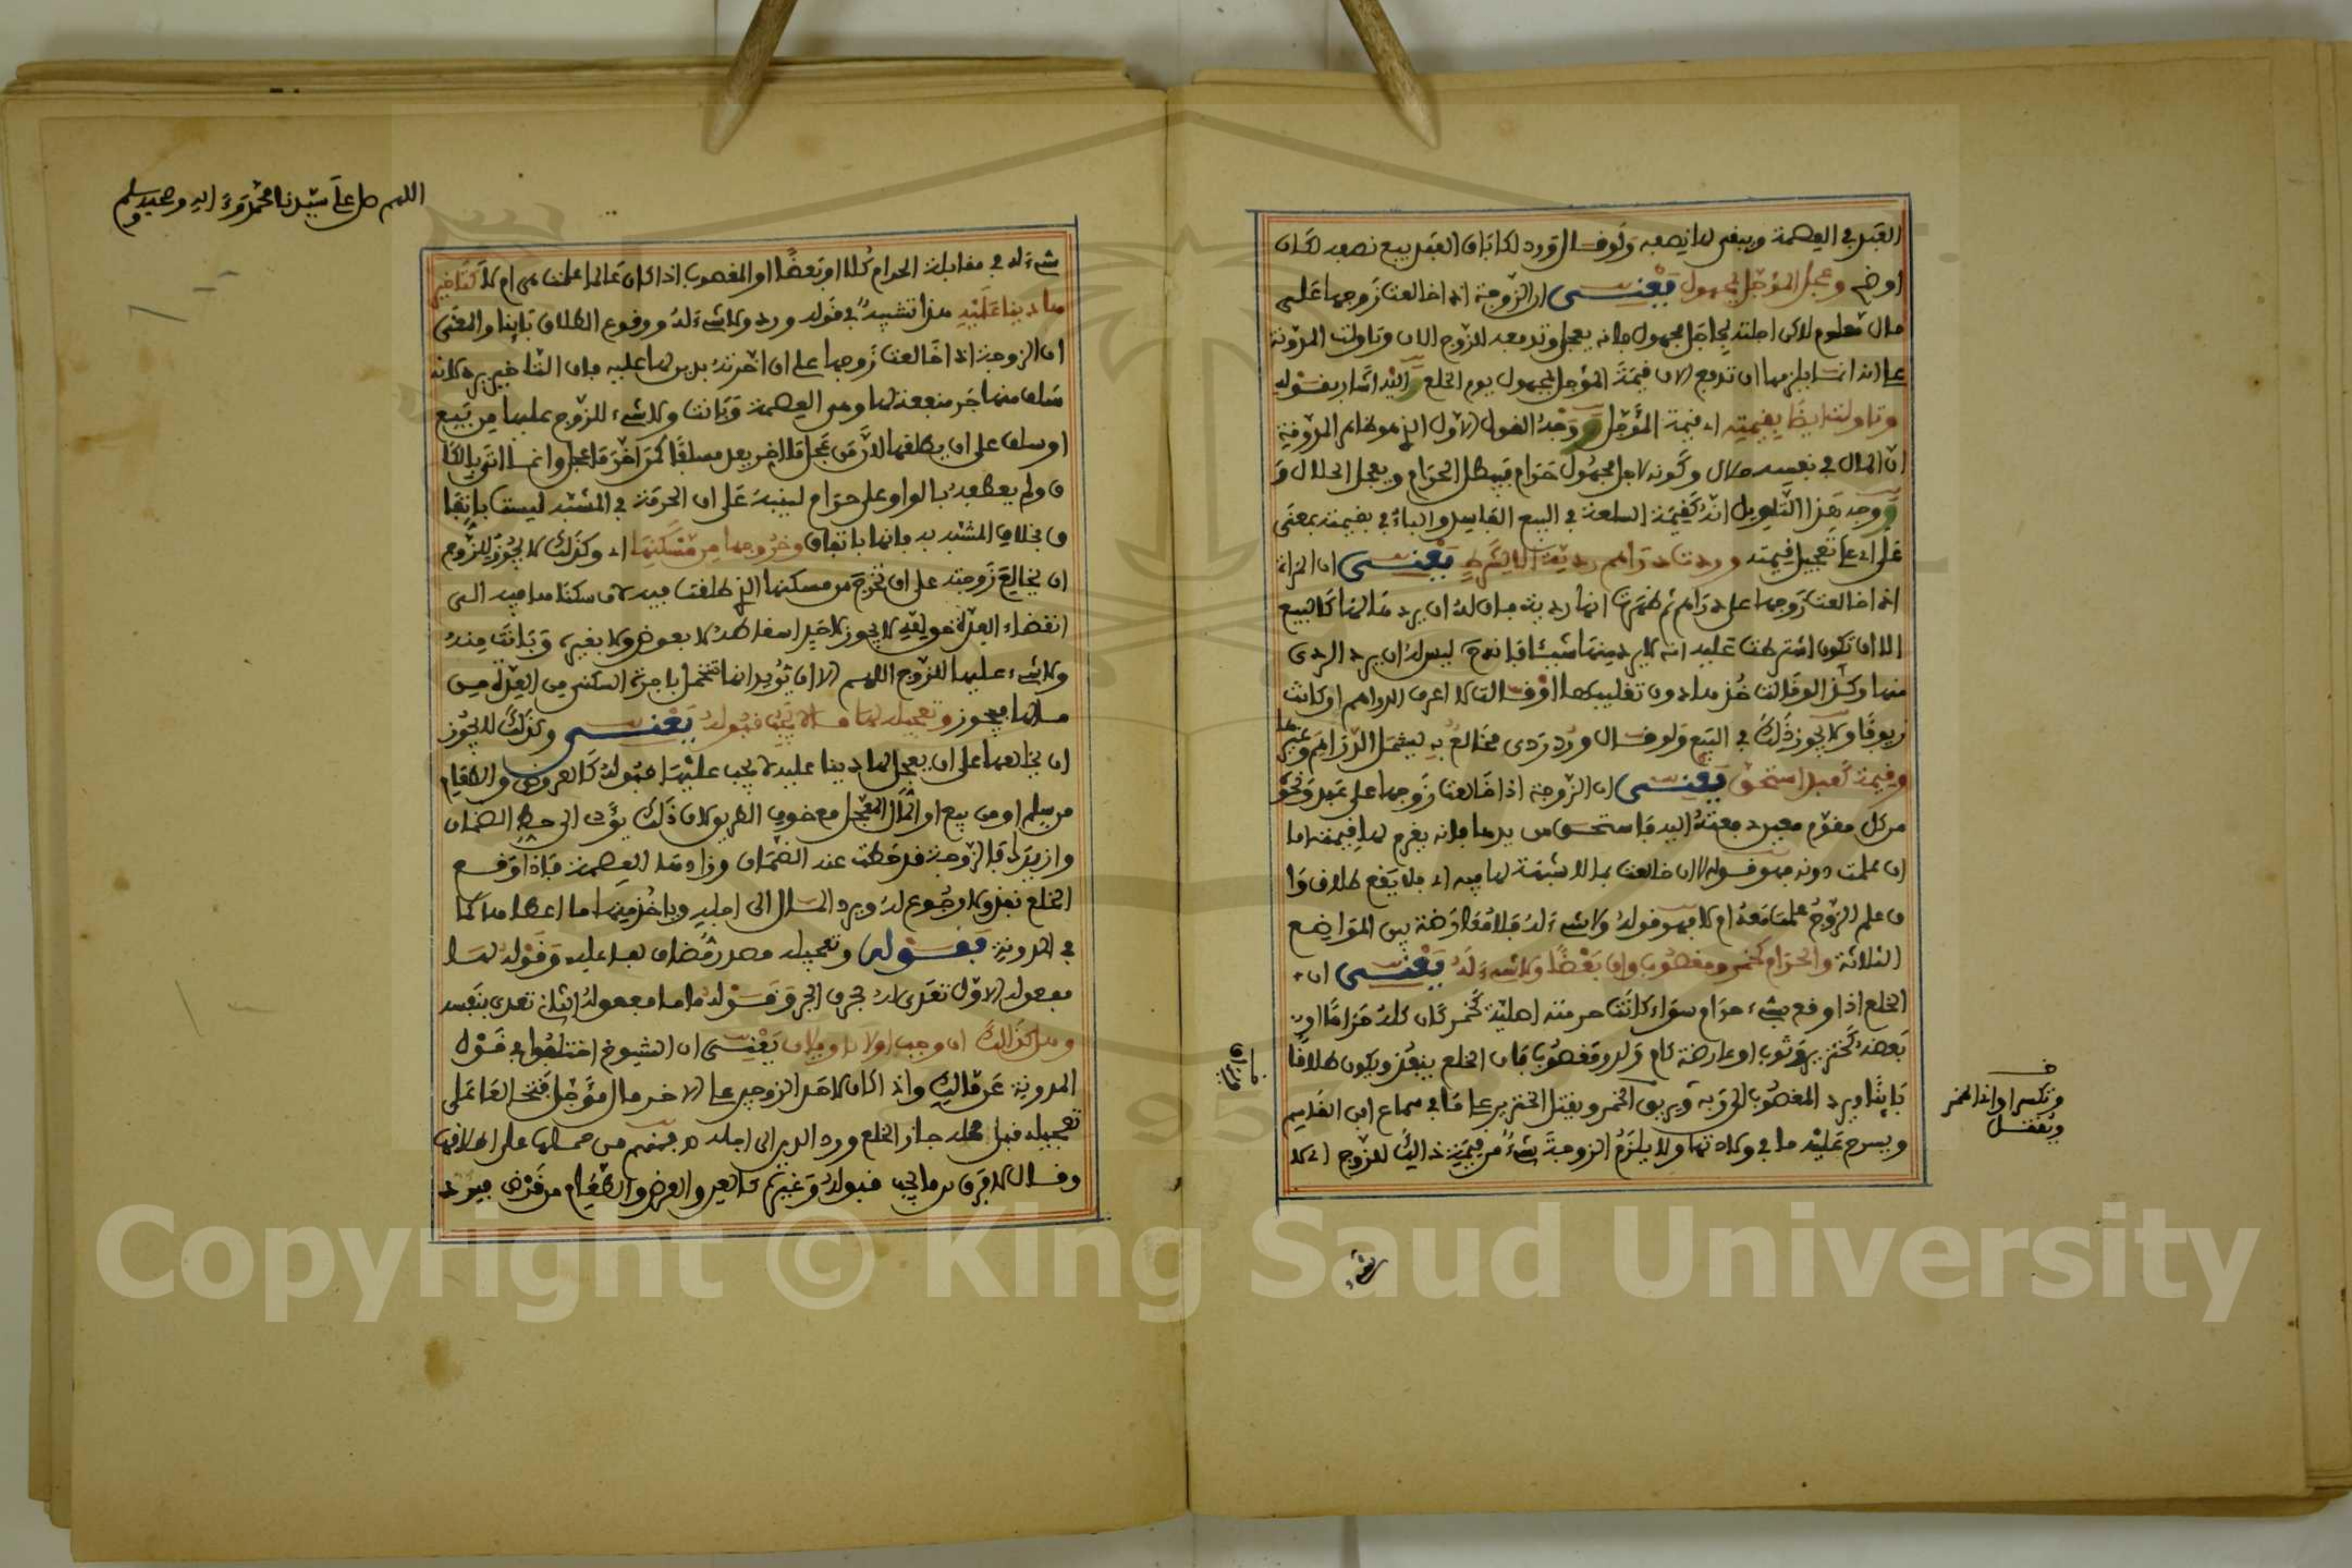 العبد في العصمة ويبقى لها نصفه ولو قال ورد لكاباق العبد ببيع نصفه لكان
اوضح وعجل المؤجل بمجهول يعنــي ان الزوجة اذا خالعت زوجها على
مال معلوم لاكن اجلته لاجل مجهول فانه يعجل وتدفعه للزوج الان وتاولت المدونة
على انه انما يلزمها ان تدفع الان قيمة المؤجل المجهول يوم الخلع واليه اشار بقوله
وتاولت ايضا بقيمته اي قيمة المؤجل ووجه القول الاول الذي هو ظاهر المدونة
ان المال في نفسه حلال وكونه لاجل مجهول حرام فيبطل الحرام ويعجل الحلال و
ووجه هذا التاويل انه كقيمة السلعة في البيع الفاسد والباء في بقيمته بمعنى
على اي على تعجيل قيمته وردت دراهم رديئة الا لشرط يعنــي ان المراة
اذا خالعت زوجها على دراهم ثم ظهر انها رديئة فان له ان يرد مالها كالبيع
الا ان تكون اشترطت عليه انه لا يرد منها شيئا فانه ليس له ان يرد الردي
منها وكذا لو قالت خذ هذا دون تقليبها او قالت لا اعرف الدراهم او كانت
زيوفا ولا يجوز ذلك في البيع ولو قال ورد ردى مخالع به ليشمل الدراهم وغيرها
وقيمة كعبد استحق يعنــي ان الزوجة اذا خالعت زوجها على عبد ونحو
من كل مقوم معين دفعته اليه فاستحق من يدها فانه يغرم لها قيمته اما
ان علمت دونه فهو قوله لا ان خالعت بما لا شبهة لها فيه اي فلا يقع طلاق وا
ن علم الزوج علمت معه ام لا فهو قوله ولا شيء له فلا معارضة بين المواضع
الثلاثة والحرام كخمر ومغصوب وان بعضا ولا شيء له يعنــي ان
الخلع اذا وقع بشيء حرام سواء كانت حرمته اصلية كخمر كان كله حراما او
بعضه كخنزير وثوب او عارضة كام ولد ومغصوب فان الخلع ينفذ ويكون طلاقا
باينا ويرد المغصوب الى ربه ويريق الخمر ويقتل الخنزير على ما في سماع ابن القاسم
ويسرح عليه ما في ولادتها ولا يلزم الزوجة شيء من قيمة ذالك للزوج اي لا
وتكسر اواني الخمر
وتغسل
شيء
اللهم صل على سيدنا محمد وءاله وصحبه وسلم
شيء له في مقابلة الحرام كلا او بعضا او المغصوب اذا كان عالما علمت هي ام لا كتاخير
ها دينا عليه هذا تشبيه في قوله ورد ولا شيء له ووقوع الطلاق باينا والمعنى
ان الزوجة اذا خالعت زوجها على ان اخرته بدين لها عليه فان التاخير يرد لانه
سلف منها جر منفعة لها وهي العصمة وبانت ولا شيء للزوج عليها من بيع
او سلف على ان يطلقها لان من عجل ما لم يجب يعد مسلفا كمن اخر ما عجل وانما اتى بالكا
ف ولم يعطفه بالواو على حرام لينبه على ان الحرمة في المشبه ليست باتفا
ق بخلاف المشبه به فانها باتفاق وخروجها من مسكنها اي وكذلك لا يجوز للزوج
ان يخالع زوجته على ان تخرج من مسكنها الذي طلقت فيه لان سكناها فيه الى
انقضاء العدة حق لله لا يجوز لاحد اسقاطه لا بعوض ولا بغيره وبانت منه
ولا شيء عليها للزوج اللهم الا ان تريد انها تتحمل باجرة السكنى من العدة من
مالها فيجوز وتعجيله لها ما لا يجب قبوله يعنــي وكذلك لا يجوز
ان يخالعها على ان يعجل لها دينا عليه لا يجب عليها قبوله كالعروض والطعام
من سلم او من بيع او المال المعجل مع خوف الطريق لان ذلك يؤدى الى حط الضمان
وازيدك فالزوجة قد حطت عنه الضمان وزادها العصمة فاذا وقع
الخلع نفذ ولا رجوع له ويرد المال الى اجله وياخذ منها ما اعطاها كما
في المدونة فقــوله وتعجيله مصدر مضاف لفاعله وقوله لها
مفعوله الاول تعدى له بحرف الجر وقوله ما مفعوله الثاني تعدى بنفسه
وهل كذلك ان وجب اولا تاويلان يعنــي ان الشيوخ اختلفوا في قول
المدونة عن مالك واذا كان لاحد الزوجين على الاخر مال مؤجل فتخالعا على
تعجيله قبل محله جاز الخلع ورد الدين الى اجله فمنهم من حملها على اطلاقها
وقال لا فرق بين ما يجب قبوله وغيره كالعين والعرض والطعام من قرض فيرد